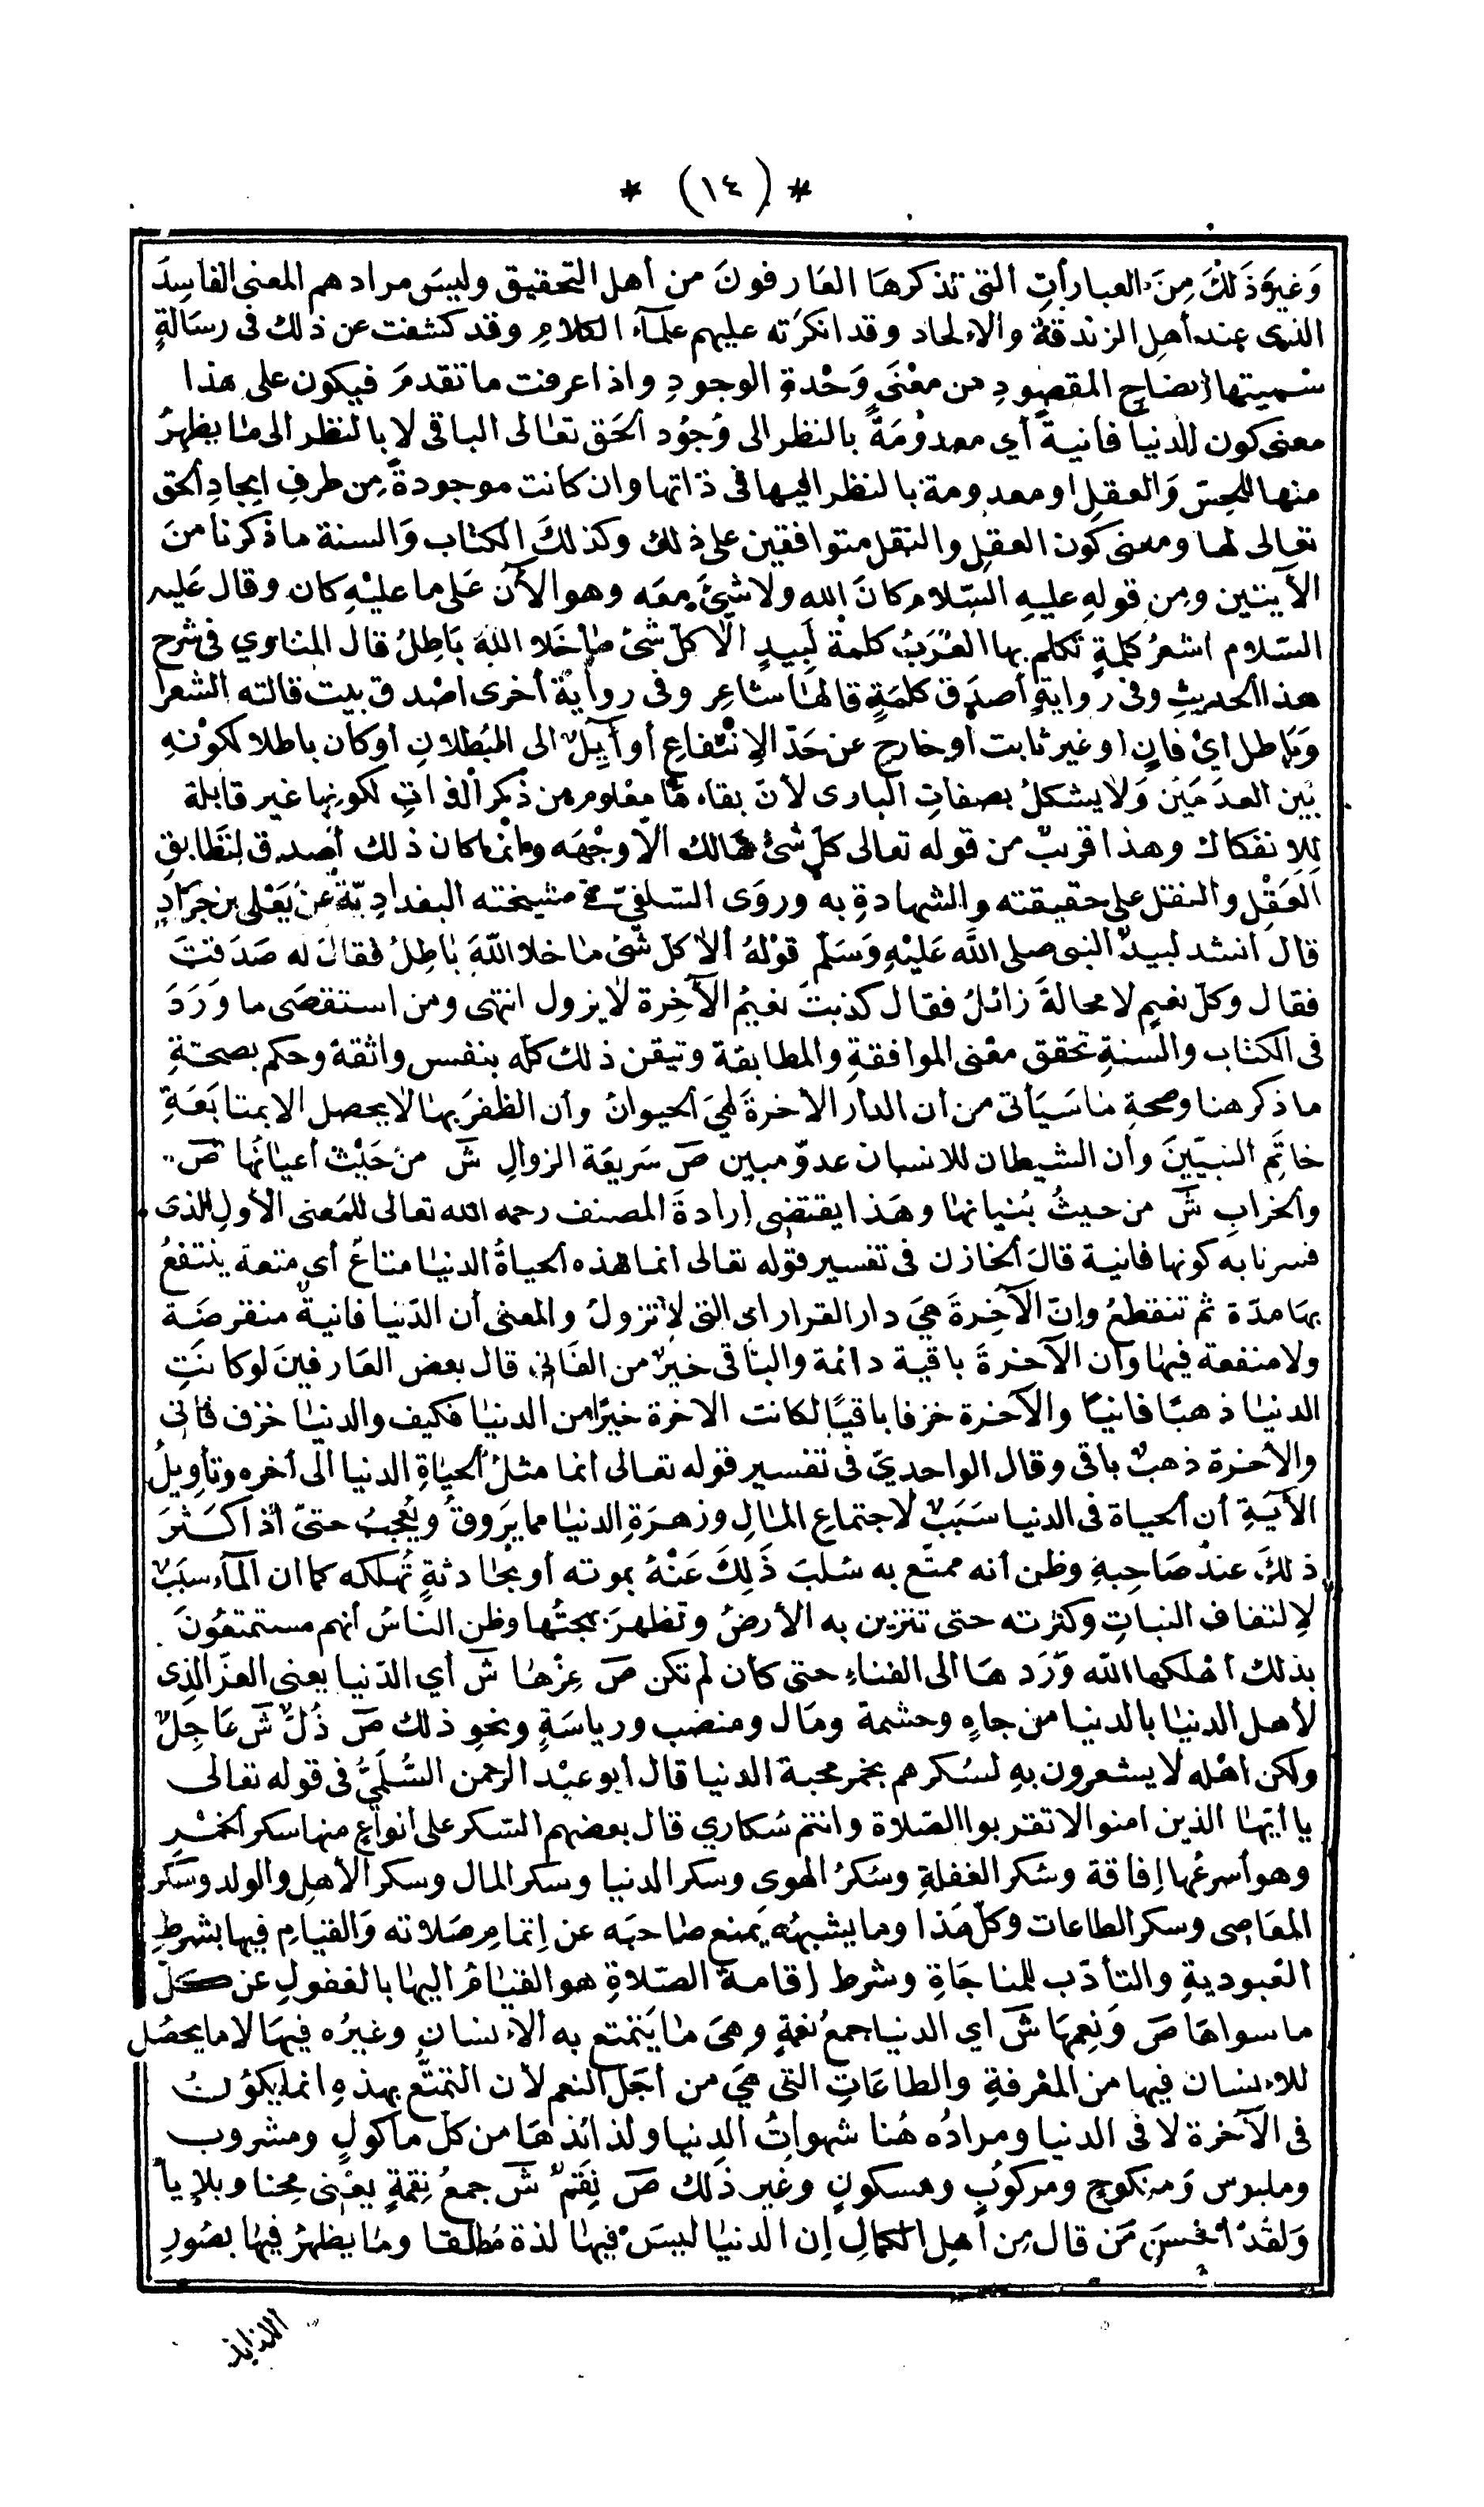 * (١٤) *
وَغيرِ ذَلكَ مِنَ العبارأتِ التى تذكرهَا العَارفونَ من أهل التحقيق وليسَ مرادهم المعنى الفاسِدَ
الذى عندأهلِ الزندقة والالحاد وقدانكرَته عليهم علمآء الكلامِ وقد كشفت عن ذلك فى رسَالةٍ
سْميتها ايضاح المقصودِ من معْنَى وَحْدةِ الوجودِ واذا عرفت ما تقدمَ فيكون على هذا
معنى كون الدنيا فانيةً أي معدوْمَةً بالنظر الى وُجوُد الحَق تعالى الباقى لا بالنظر الى ما يظهرُ
منها للحِسّ وَالعقلِ او معدومة بالنظر اليها فى ذاتها وان كانت موجودةً مِن طرفِ ايجادِ الحق
تعالى لها ومعنى كون العقلِ والنقل متوافقين على ذلك وكذلكَ الكتاب وَالسنة ما ذكرنا منَ
الآيتين ومِن قولهِ عليهِ السّلام كانَ الله ولا شيَ معَه وهو الآن عَلى ما عليْهِ كان وقال عَليه
السّلام اشعرُ كلمةٍ تكلم بها العُرَبُ كلمة لَبيدٍ الا كلّ شئ ما خَلا اللّهَ بَاطِلُ قال المناوي فى شرح
هذا الحديثِ وفى روايةٍ أصدَق كلمَةٍ قالهَا شاعِر وفى روأيةْ أخرى اصْدق بيت قالته الشعرا
وَباطل ايْ فانٍ او غير ثابت أو خارج عن حَدّ الإنتفاعِ أو آيِلٌ الى البُطلانِ أو كان باطلا لكوْنهِ
بَين العدَمَيْن وَلا يشكلُ بصفاتِ البارى لأنّ بقاءهَا معْلوم من ذكْر الذاتِ لكونها غير قابلة
لِلانفكاك وهذا قريبٌ من قوله تعالى كلّ شئ هَالك الاّ وجْهَه وانمّا كان ذلك أصدق لتَطابقِ
العَقْل والنقل على حقيقته والشهادةِ به وروَى السّلفىّ فى مشيخته البغدادِيّة عنْ يَعْلى بن جرَادٍ
قال أنشد لبيدٌ النبى صلى اللَّه عَليْهِ وَسَلّم قوْلهُ ألا كلّ شئ ما خلا اللّهَ بَاطِلُ فقالَ له صَدَقتَ
فقال وكلّ نعيمٍ لا محالةَ زائلُ فقال كذبتَ نعيمُ الآخِرة لا يزول انتهى ومن استقصَى ما وَرَدَ
فى الكتاب والسنةِ تحقق معْنى الموافقةِ والمطابقة وتيقن ذلك كلّه بنفس واثقة وحكم بصحّةِ
ما ذكر هنا وصحةِ ما سَيَأتى من أن الدأر الأخرةَ لهيَ الحيوانُ وأن الظفرَ بها لا يحصل الا بمتابَعَةِ
خاتَمِ النبيّينَ وأن الشيطان للانسان عدوّ مبين صَ سَريعَة الزوالِ شَ منْ حَيْثُ أعيانُها صَ
والخرابِ شَ من حيثُ بُنيانها وهَذا يقتضى ارادةَ المصنف رحمه الله تعالى للمَعنى الأولِ الذى
فسرنا به كونها فانية قالَ الخازن فى تفسير قوله تعالى انما هذه الحياةُ الدنيا متاعُ أى متعة ينتفعُ
بهَا مدّة ثم تنقطعُ وإنّ الآخِرةَ هيَ دار القرار اى التى لا تزولُ والمعنى أن الدّنيا فانيةٌ منقرضَة
ولا منفعة فيها وأن الآخرةَ باقية دائمة والبَاقى خيرٌ من الفَانى قال بعض العَارفينَ لو كانَتِ
الدنيا ذهبًا فانيًا والآخرة خزفا باقيًا لكانت الاخرة خيرًا من الدنيا فكيف والدنيا خزف فانى
والأخرة ذهبٌ باقى وقال الواحديّ فى تفسير قوله تعالى انما مثلُ الحيَاةِ الدنيا الى أخره وتأويلُ
الآيَةِ أن الحياة فى الدنيا سَبَبٌ لاجتماعِ المالِ وزهرَةِ الدنيا مما يَروقُ ويُعْجبُ حتىّ أذا كَثرَ
ذلكَ عندَ صَاحِبهِ وظن أنه ممتّع به سُلبَ ذَلِكَ عَنْهُ بموته أو بحَادثةٍ تُهلكه كما ان المآء سبَبٌ
لِالتفاف النباتِ وكثرته حتى تتزين به الأرضُ وتظهرَ بهجتُها وظن الناسُ أنهم مستمتعُونَ
بذلك أهْلكها اللّه وَرَدهَا الى الفناءِ حتى كأن لم تكن صَ عِزّهَا شَ أي الدّنيا يعنى العزّ الذى
لأهل الدنيا بالدنيا من جاهٍ وحشمة ومَال ومنصب ورياسَةٍ ونحوِ ذلك صَ ذُلٌّ شَ عَاجِلٌ
ولكن اهْله لا يشعرون بهِ لسُكرهم بخمر محبة الدنيا قال أبو عبْد الرحمن السُّلَمِيُّ فى قوله تعالى
يا أيّها الذين امنوا لا تقربوا الصّلاة وانتم سُكاري قال بعضهم السّكر على أنواعٍ منها سكر الخمْرِ
وهو أسرعُها إفاقة وسُكر الغفلةِ وسُكرُ الهوى وسكر الدنيا وسكر المال وسكر الأهلِ والولد وسكر
المعَاصِى وسكر الطاعات وكلّ هَذا وما يشبهُه يَمنع صَاحبَه عن إتمامِ صَلاته وَالقيَامِ فيها بشرطِ
العُبوديةِ والتأدّب للمناجَاةِ وشرط إقامة الصّلاةِ هو القيَامُ اليهَا بالغفولِ عن كلّ
ما سواهَا صَ وَنِعمهَا شَ اى الدنيا جمعُ نعمةٍ وهىَ مَا يَتمتع به الانسان وغيرُه فيهَا لا ما يحصُل
للانسان فيها من المعْرفةِ والطاعَاتِ التى هىَ من أجَلّ النعم لأن التمتّع بهذهِ انما يكوُنُ
فى الآخرة لا فى الدنيا ومرادُه هُنا شهواتُ الدنيا ولذائذهَا من كلّ ماكولٍ ومشروب
وملبوس وَمنكوحٍ ومركوُبٍ ومسكونٍ وغير ذلك صَ نِقَمٌ شَ جمعُ نِقمةٍ يعْنى محِنا وبلايأ
وَلقدْ احْسَن مَن قال مِن أهلِ الكمالِ إن الدنيا ليسَ فيها لذة مُطلقا ومَا يظهرُ فيهَا بصُورِ
اللذايذ